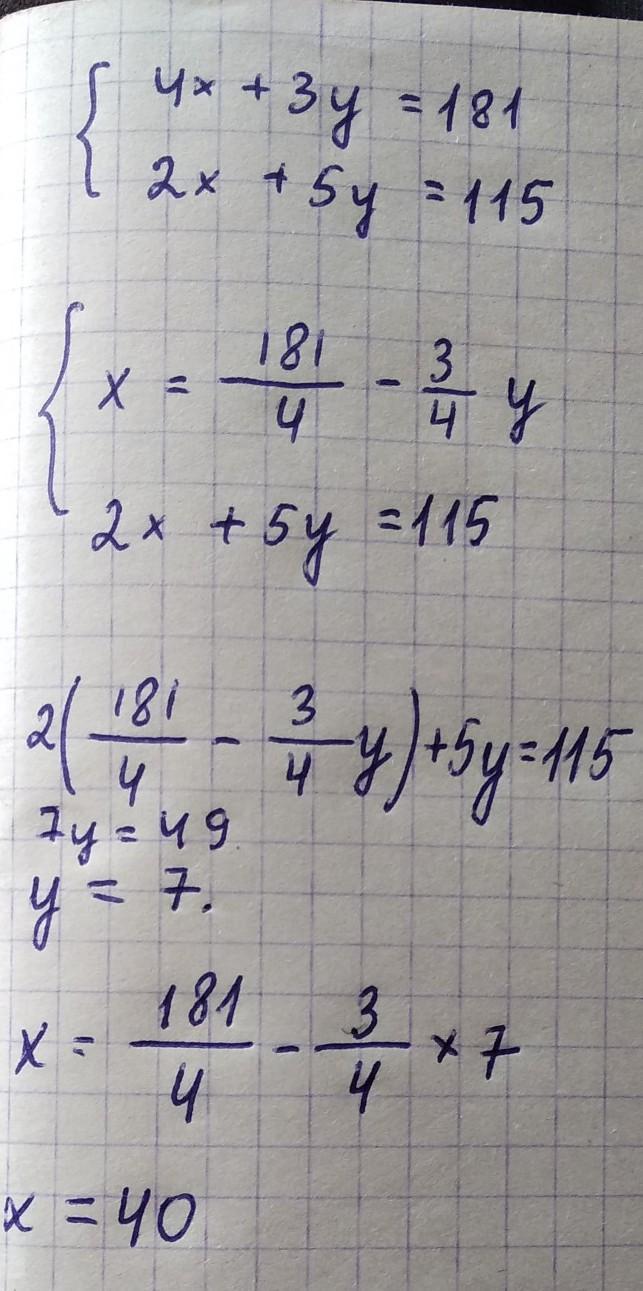 { 4x + 3y = 181
2x + 5y = 115
{ x = 181/4 - 3/4 y
2x + 5y = 115
2(181/4 - 3/4 y) + 5y = 115
7y = 49
y = 7.
x = 181/4 - 3/4 × 7
x = 40